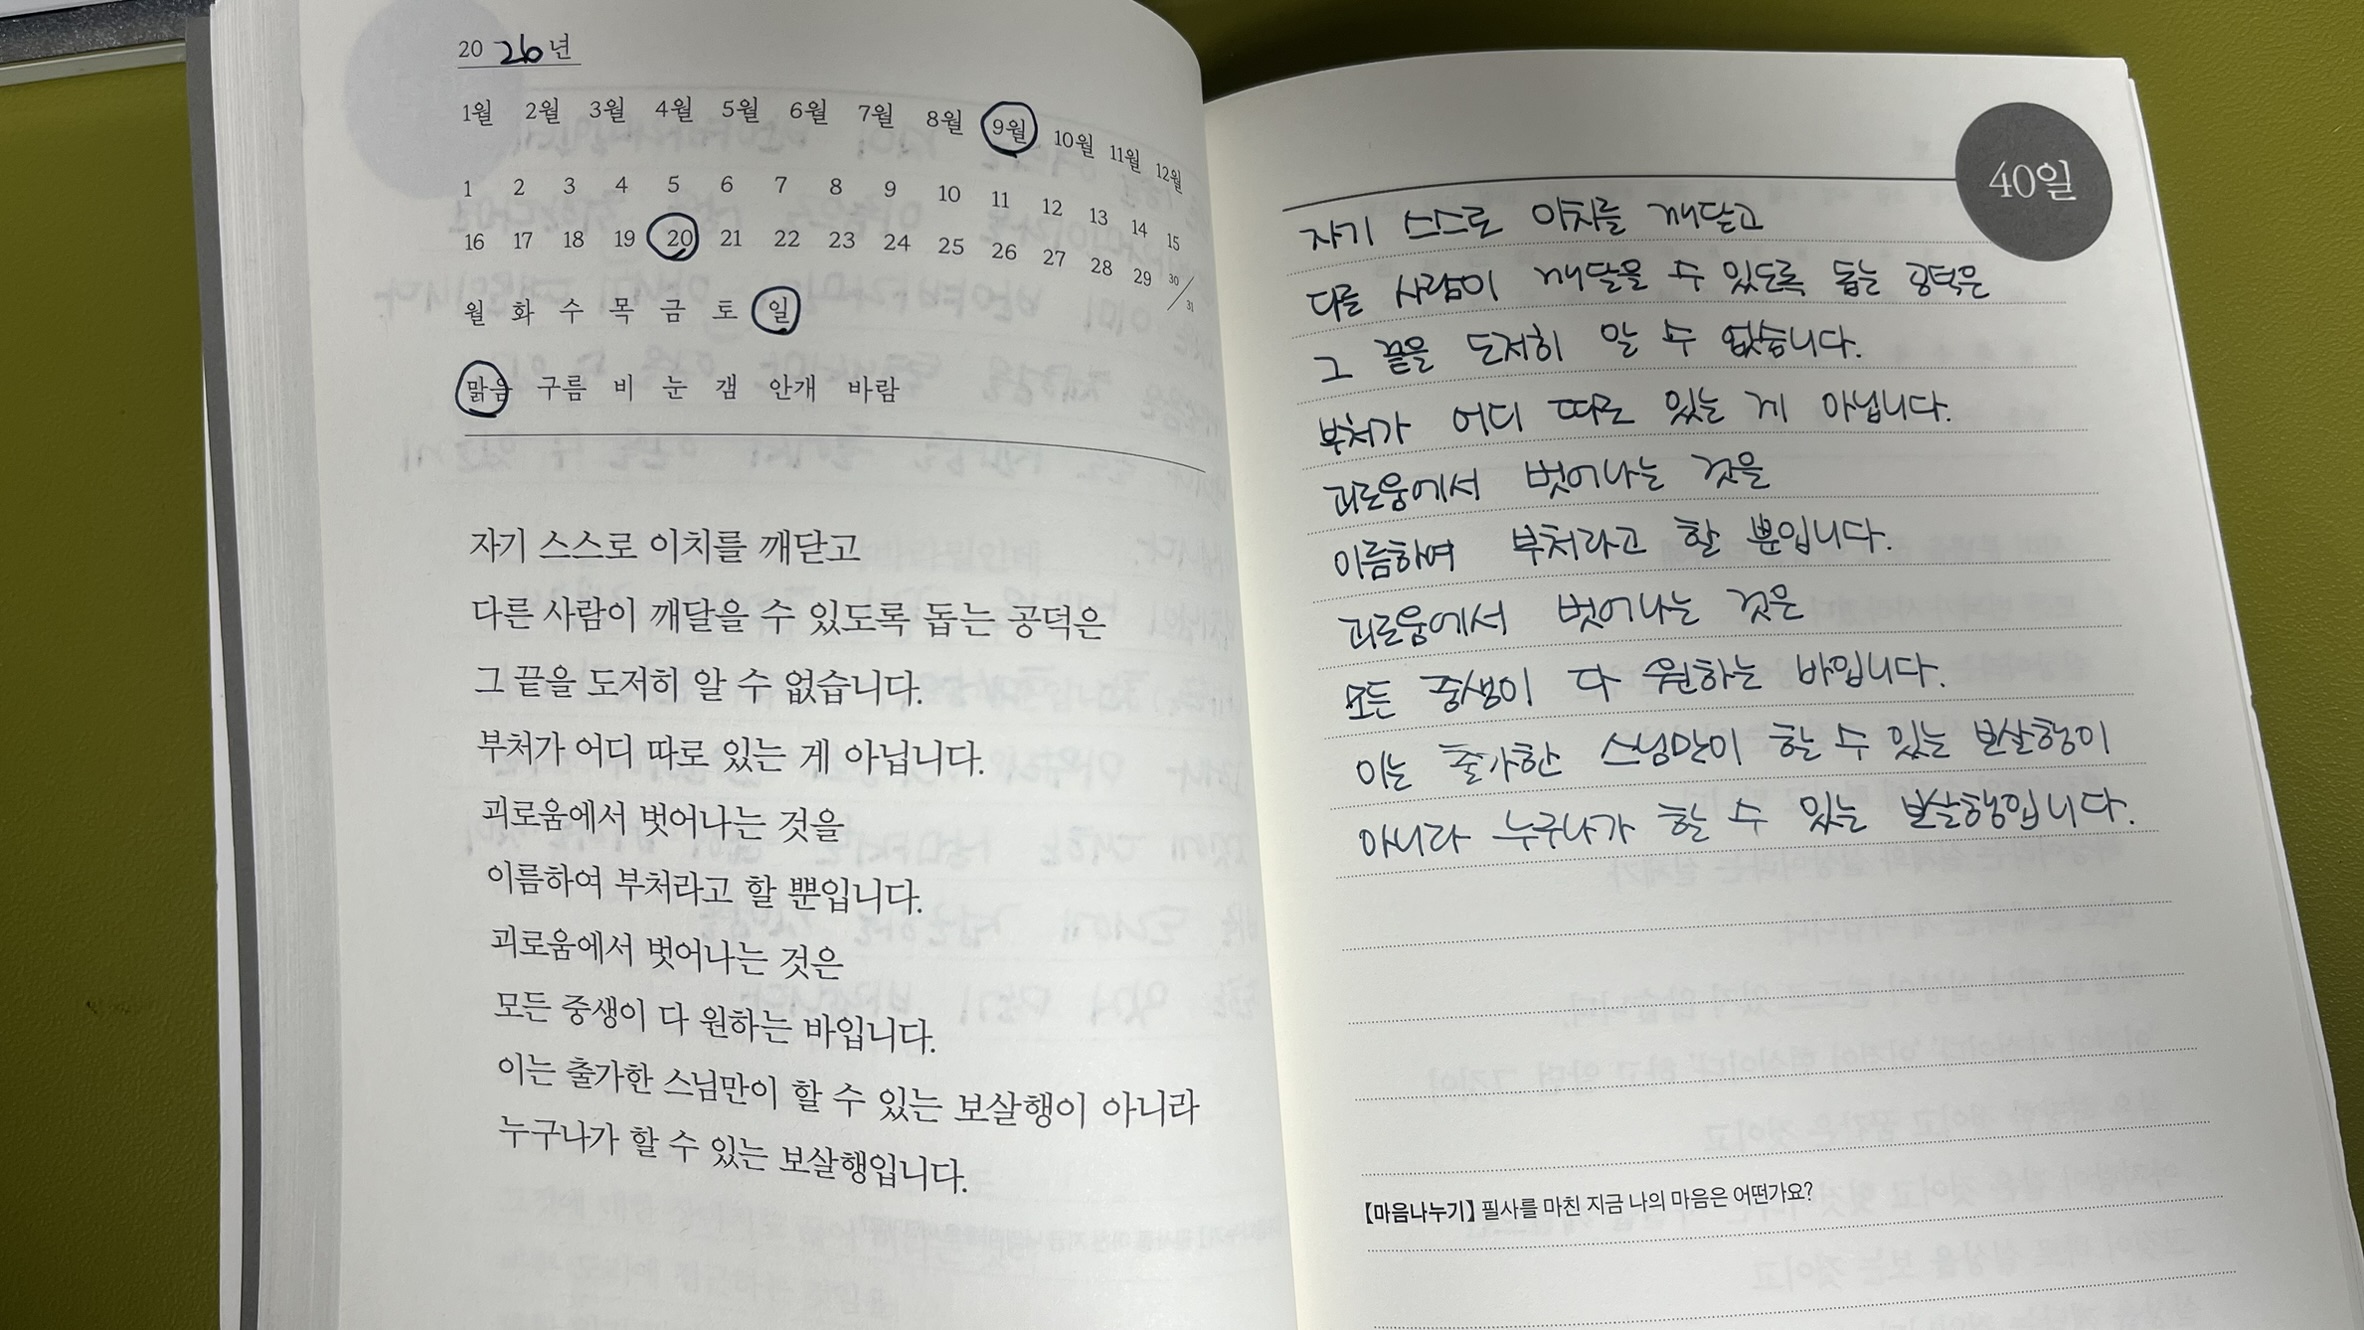 2026년
1월 2월 3월 4월 5월 6월 7월 8월 9월 10월 11월 12월
1 2 3 4 5 6 7 8 9 10 11 12 13 14 15
16 17 18 19 20 21 22 23 24 25 26 27 28 29 30/31
월 화 수 목 금 토 일
맑음 구름 비 눈 갬 안개 바람
자기 스스로 이치를 깨닫고
다른 사람이 깨달을 수 있도록 돕는 공덕은
그 끝을 도저히 알 수 없습니다.
부처가 어디 따로 있는 게 아닙니다.
괴로움에서 벗어나는 것을
이름하여 부처라고 할 뿐입니다.
괴로움에서 벗어나는 것은
모든 중생이 다 원하는 바입니다.
이는 출가한 스님만이 할 수 있는 보살행이 아니라
누구나가 할 수 있는 보살행입니다.
40일
자기 스스로 이치를 깨닫고
다른 사람이 깨달을 수 있도록 돕는 공덕은
그 끝을 도저히 알 수 없습니다.
부처가 어디 따로 있는 게 아닙니다.
괴로움에서 벗어나는 것을
이름하여 부처라고 할 뿐입니다.
괴로움에서 벗어나는 것은
모든 중생이 다 원하는 바입니다.
이는 출가한 스님만이 할 수 있는 보살행이
아니라 누구나가 할 수 있는 보살행입니다.
[마음나누기] 필사를 마친 지금 나의 마음은 어떤가요?